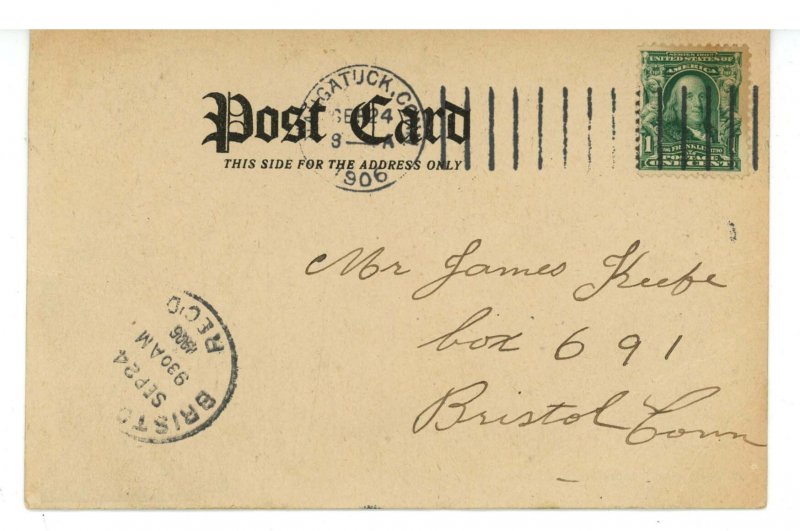 Post Card
THIS SIDE FOR THE ADDRESS ONLY
GATUCK, CONN
SEP 24
1906
SERIES 1902
UNITED STATES OF
AMERICA
FRANKLIN
1790
POSTAGE
1 ONE CENT
Mr James Keefe
box 691
Bristol Conn
BRISTO
SEP 24
930 AM
1906
REC'D